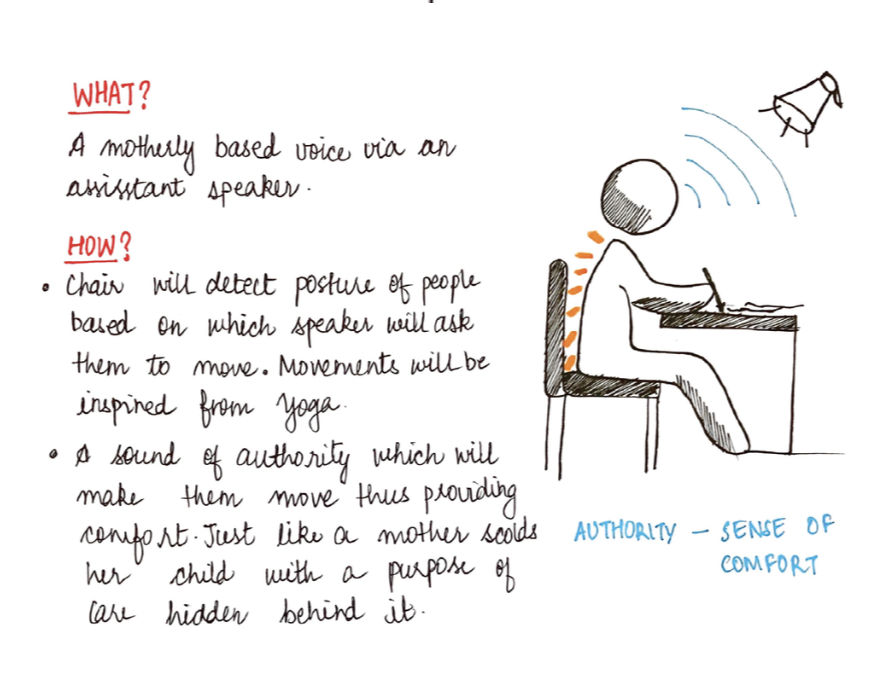 WHAT?
A motherly based voice via an
assisstant speaker.
HOW?
• Chair will detect posture of people
based on which speaker will ask
them to move. Movements will be
inspired from Yoga.
• A sound of authority which will
make them move thus providing
comfort. Just like a mother scolds
her child with a purpose of
care hidden behind it.
AUTHORITY – SENSE OF
COMFORT